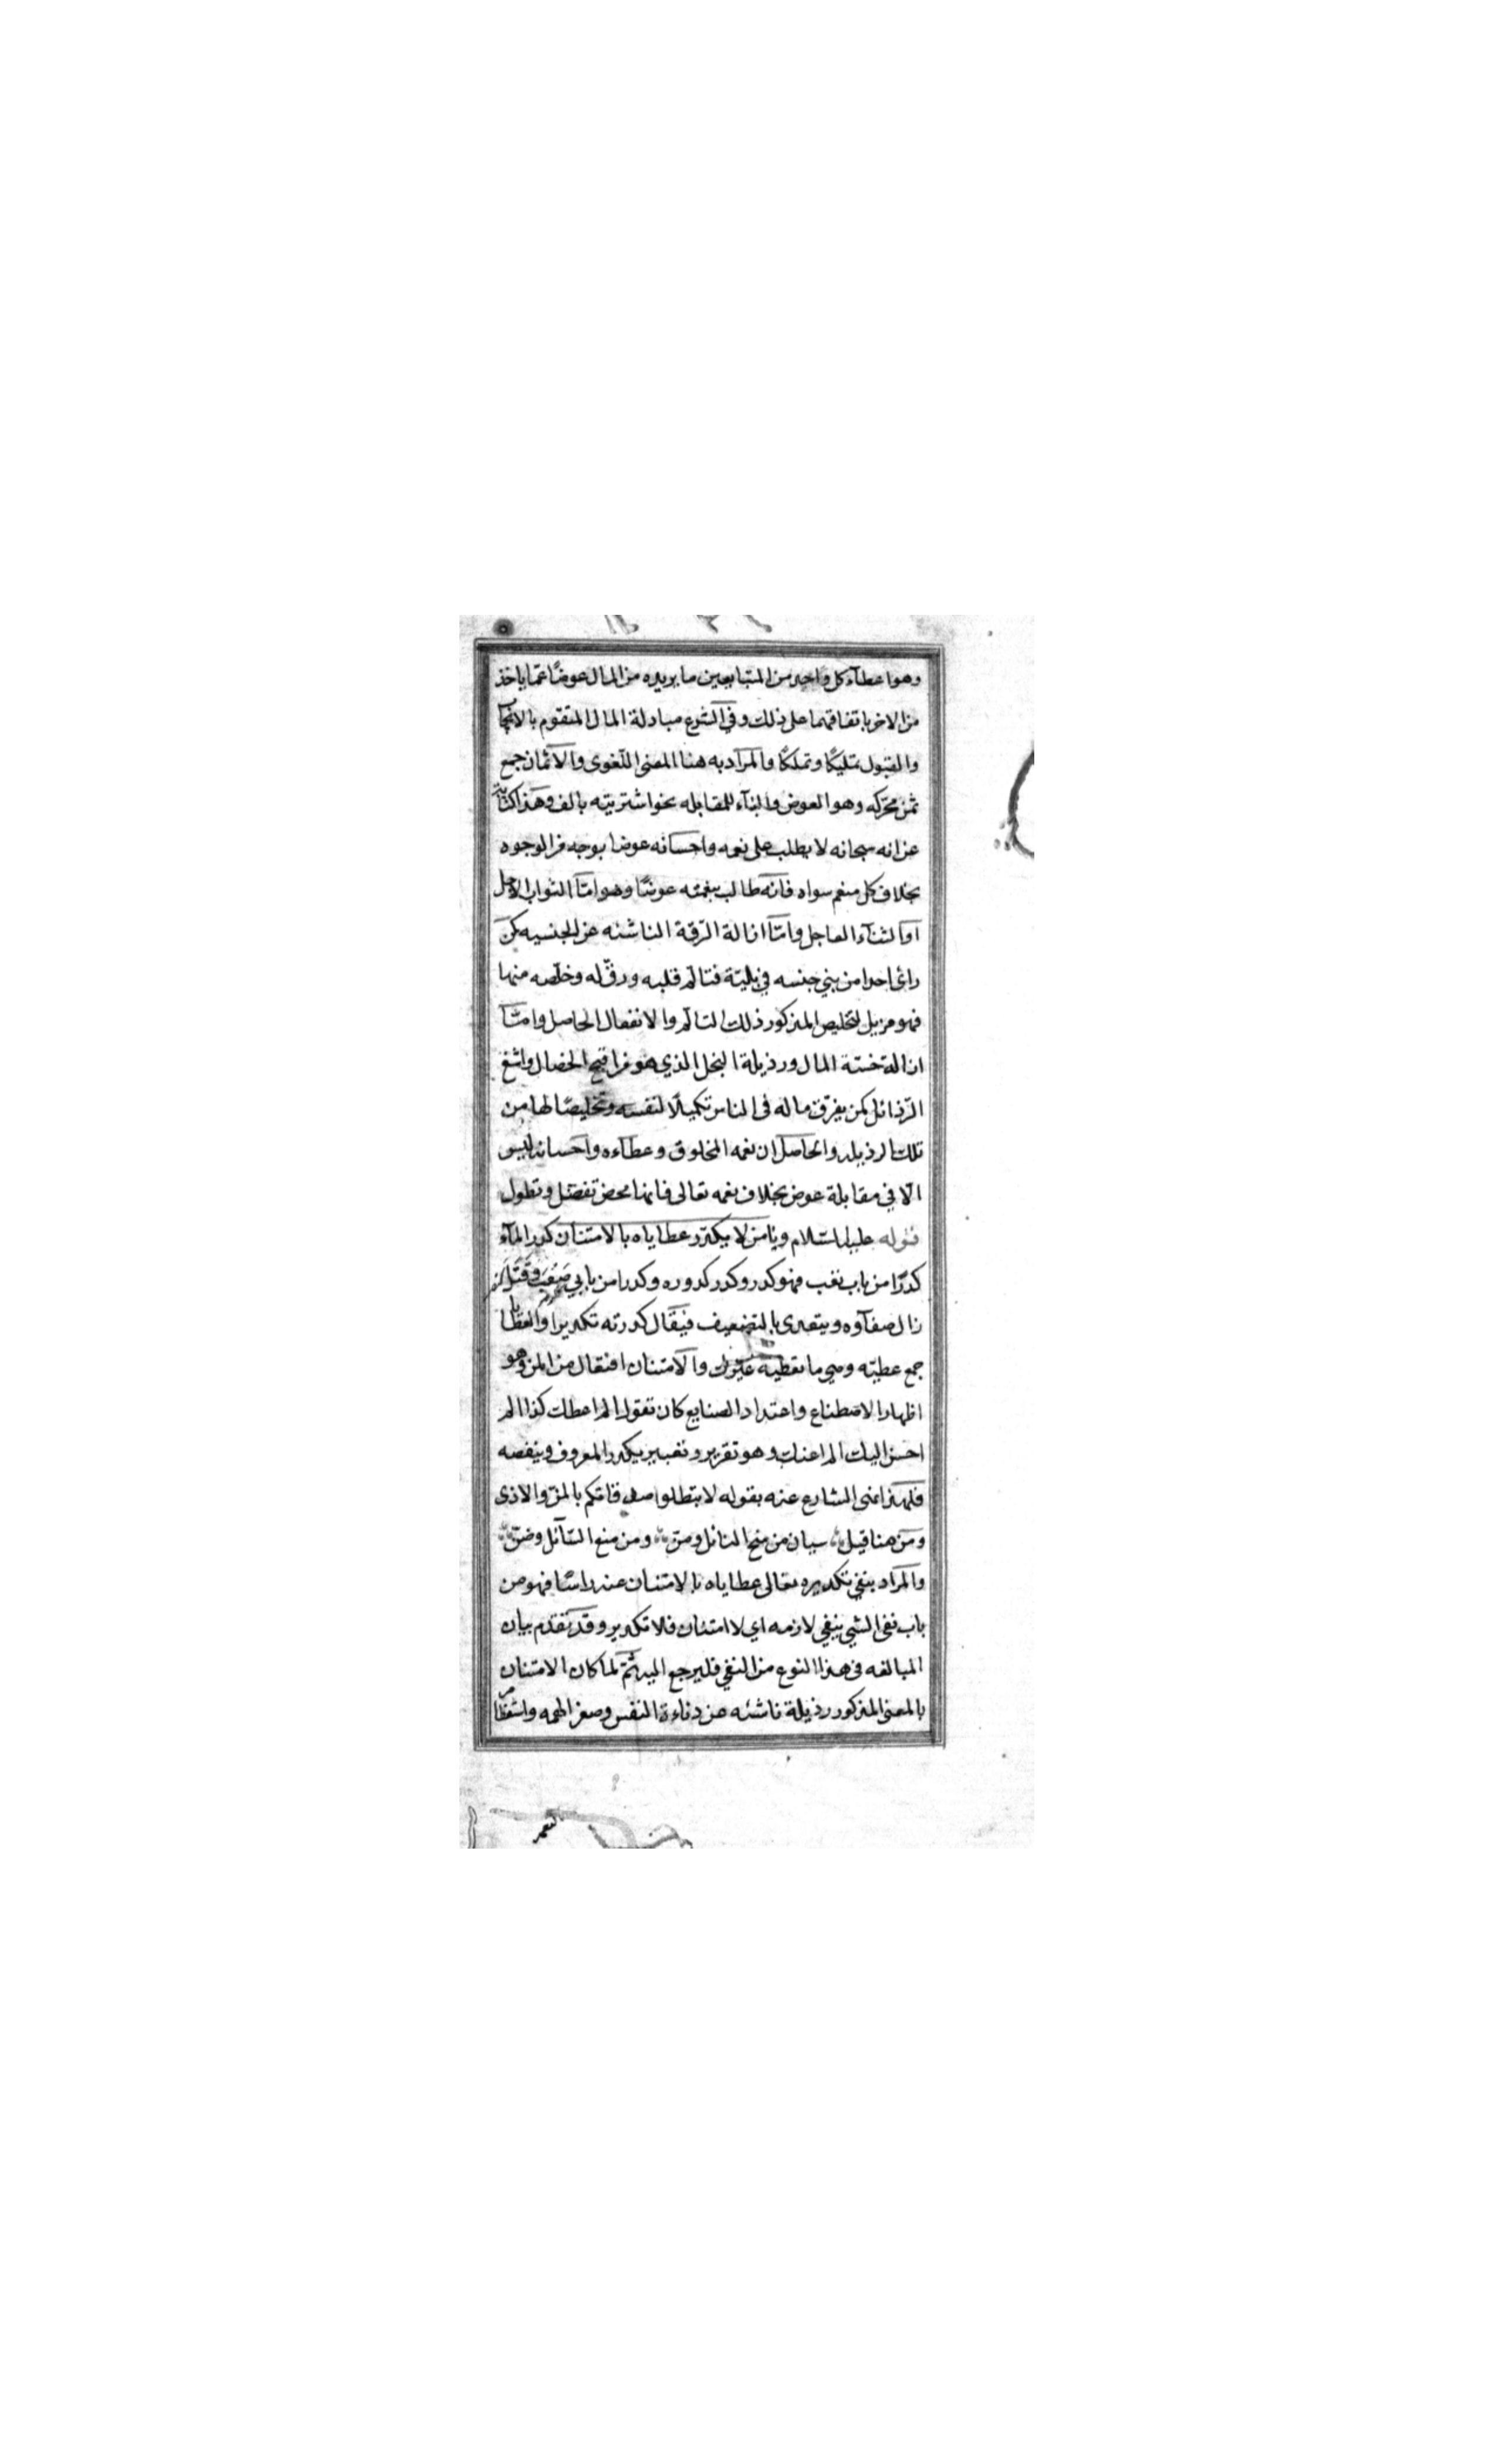 وهو اعطآء كل واحد من المتبايعين ما يريده من المال عوضًا عمّا ياخذ
من الاخر باتفاقهما على ذلك وفي الشرع مبادلة المال المتقوم بالايجآ
والقبول تمليكًا وتملكًا والمرآد به هنا المعنى اللّغوى والاثمان جمع
ثمن محرّكه وهو العوض والبآء للمقابله نحو اشتريته بالف وهذا كناية
عن انه سبحانه لا يطلب على نعمه واحسانه عوضا بوجه من الوجوه
بخلاف كل منعم سواه فانّه طالب بنعمته عوضًا وهو امّا الثواب الاجل
او الثنآء العاجل وامّا ازالة الرّقة الناشئه عن الجنسيه كمن
رائ احدا من بني جنسه في بليّة فتالّم قلبه ورقّ له وخلّصه منها
فهو مزيل لتخليص المذكور ذلك التالّم والانفعال الحاصل وامّا
ازالة خسّة المال ورذيلة البخل الذي هو من اقبح الخصال واشنع
الرّذائل كمن يفرّق ماله فى الناس تكميلًا لنفسه وتخليصًا لها من
تلك الرذيله والحاصل ان نعمه المخلوق وعطآءه واحسانه ليس
الّا في مقابلة عوض بخلاف نعمه تعالى فانها محض تفضّل وتطول
قوله عليه السّلام ويا من لا يكدّر عطاياه بالامتنان كدر المآء
كدرًا من باب تعب فهو كدر وكدر كدوره وكدرا من بابي صَعُبَ وقَتَلَ
زال صفآوه ويتعدى بالتضعيف فيقال كدرته تكديرا والعطايا
جمع عطيّه وهي ما تعطيه غيرك والامتنان افتعال من المنّ وهو
اظهار الاصطناع واعتداد الصنايع كان تقول الم اعطك كذا الم
احسن اليك الم اعنك وهو تقرير وتعيير يكدر المعروف وينغصه
فلهذا نهى الشارع عنه بقوله لا تبطلوا صدقاتكم بالمنّ والاذى
ومن هنا قيل سيان من منح النائل ومنّ ومن منع السّآئل وضنّ
والمرآد بنفي تكديره تعالى عطاياه بالامتنان عند راسًا فهو من
باب نفى الشيى بنفي لازمه اي لا امتنان فلا تكدير وقد تقدم بيان
المبالغه فى هذا النوع من النفي فليرجع اليه ثمّ لما كان الامتنان
بالمعنى المذكور رذيلة ناشئه عن دناءة النفس وصغر الهمه